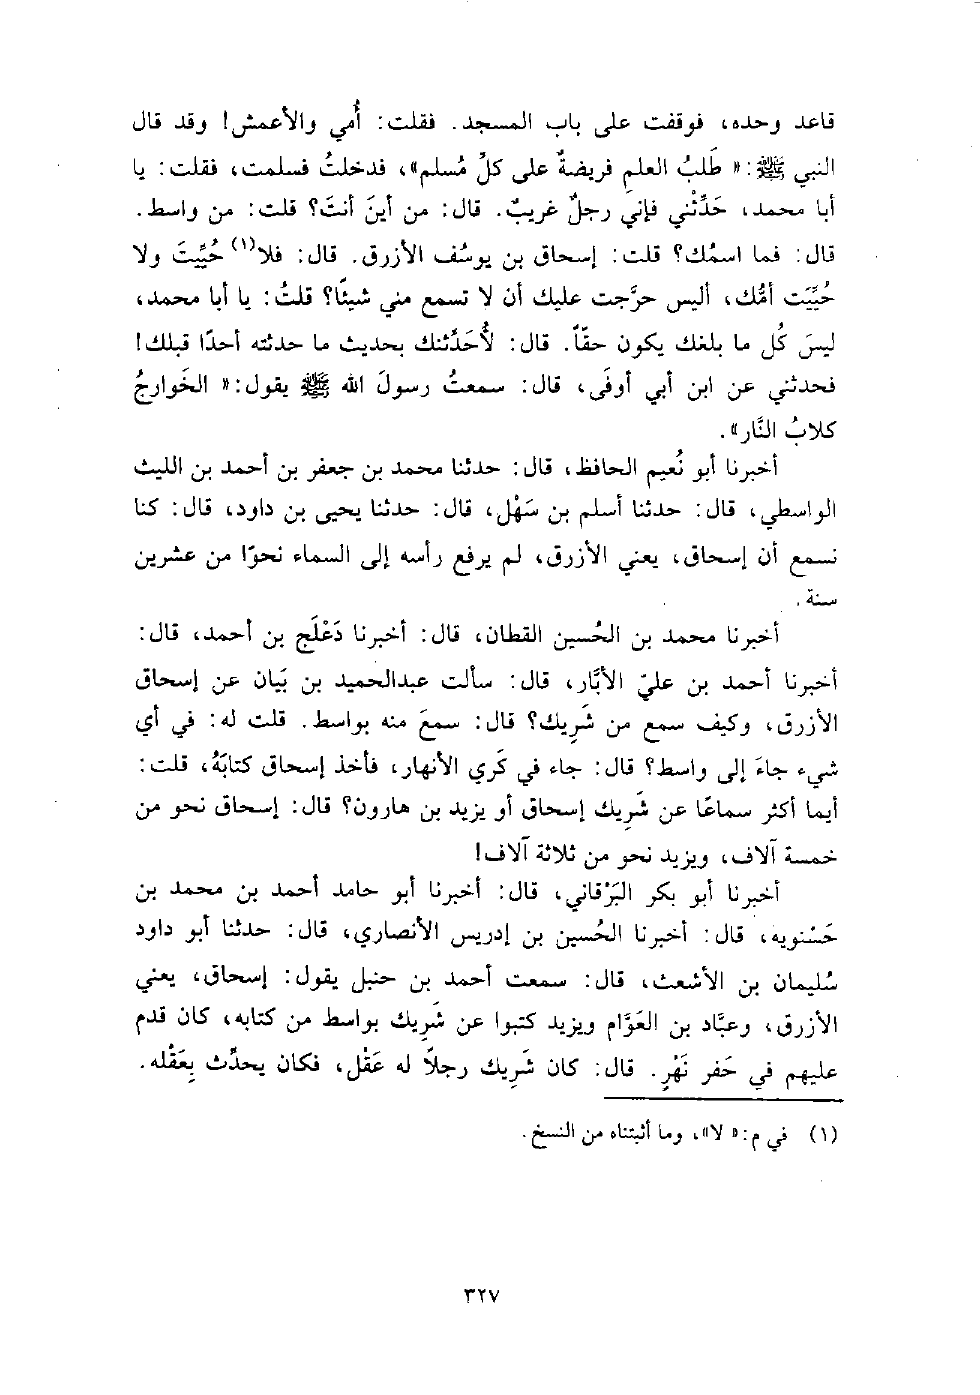 قاعد وحده، فوقفت على باب المسجد. فقلت: أُمي والأعمش! وقد قال
النبي ﷺ: «طَلبُ العلمِ فريضةٌ على كلِّ مُسلم»، فدخلتُ فسلمت، فقلت: يا
أبا محمد، حَدِّثْني فإني رجلٌ غريبٌ. قال: من أينَ أنتَ؟ قلت: من واسط.
قال: فما اسمُك؟ قلت: إسحاق بن يوسُف الأزرق. قال: فلا(١) حُيِّيتَ ولا
حُيِّيَت أمُّك، أليس حرَّجت عليك أن لا تسمع مني شيئًا؟ قلتُ: يا أبا محمد،
ليسَ كُل ما بلغك يكون حقاً. قال: لأُحَدِّثنك بحديث ما حدثته أحدًا قبلك!
فحدثني عن ابن أبي أوفَى، قال: سمعتُ رسولَ الله ﷺ يقول: «الخَوارجُ
كلابُ النَّار».
أخبرنا أبو نُعيم الحافظ، قال: حدثنا محمد بن جعفر بن أحمد بن الليث
الواسطي، قال: حدثنا أسلم بن سَهْل، قال: حدثنا يحيى بن داود، قال: كنا
نسمع أن إسحاق، يعني الأزرق، لم يرفع رأسه إلى السماء نحوًا من عشرين
سنة.
أخبرنا محمد بن الحُسين القطان، قال: أخبرنا دَعْلَج بن أحمد، قال:
أخبرنا أحمد بن عليّ الأبَّار، قال: سألت عبدالحميد بن بَيان عن إسحاق
الأزرق، وكيف سمع من شَرِيك؟ قال: سمعَ منه بواسط. قلت له: في أي
شيء جاءَ إلى واسط؟ قال: جاء في كَري الأنهار، فأخذ إسحاق كتابَهُ، قلت:
أيما أكثر سماعًا عن شَرِيك إسحاق أو يزيد بن هارون؟ قال: إسحاق نحو من
خمسة آلاف، ويزيد نحو من ثلاثة آلاف!
أخبرنا أبو بكر البَرْقاني، قال: أخبرنا أبو حامد أحمد بن محمد بن
حَسْنويه، قال: أخبرنا الحُسين بن إدريس الأنصاري، قال: حدثنا أبو داود
سُليمان بن الأشعث، قال: سمعت أحمد بن حنبل يقول: إسحاق، يعني
الأزرق، وعبَّاد بن العَوَّام ويزيد كتبوا عن شَرِيك بواسط من كتابه، كان قدم
عليهم في حَفر نَهْرٍ. قال: كان شَرِيك رجلاً له عَقْل، فكان يحدِّث بِعَقْله.
(١) في م: «لا»، وما أثبتناه من النسخ.
٣٢٧